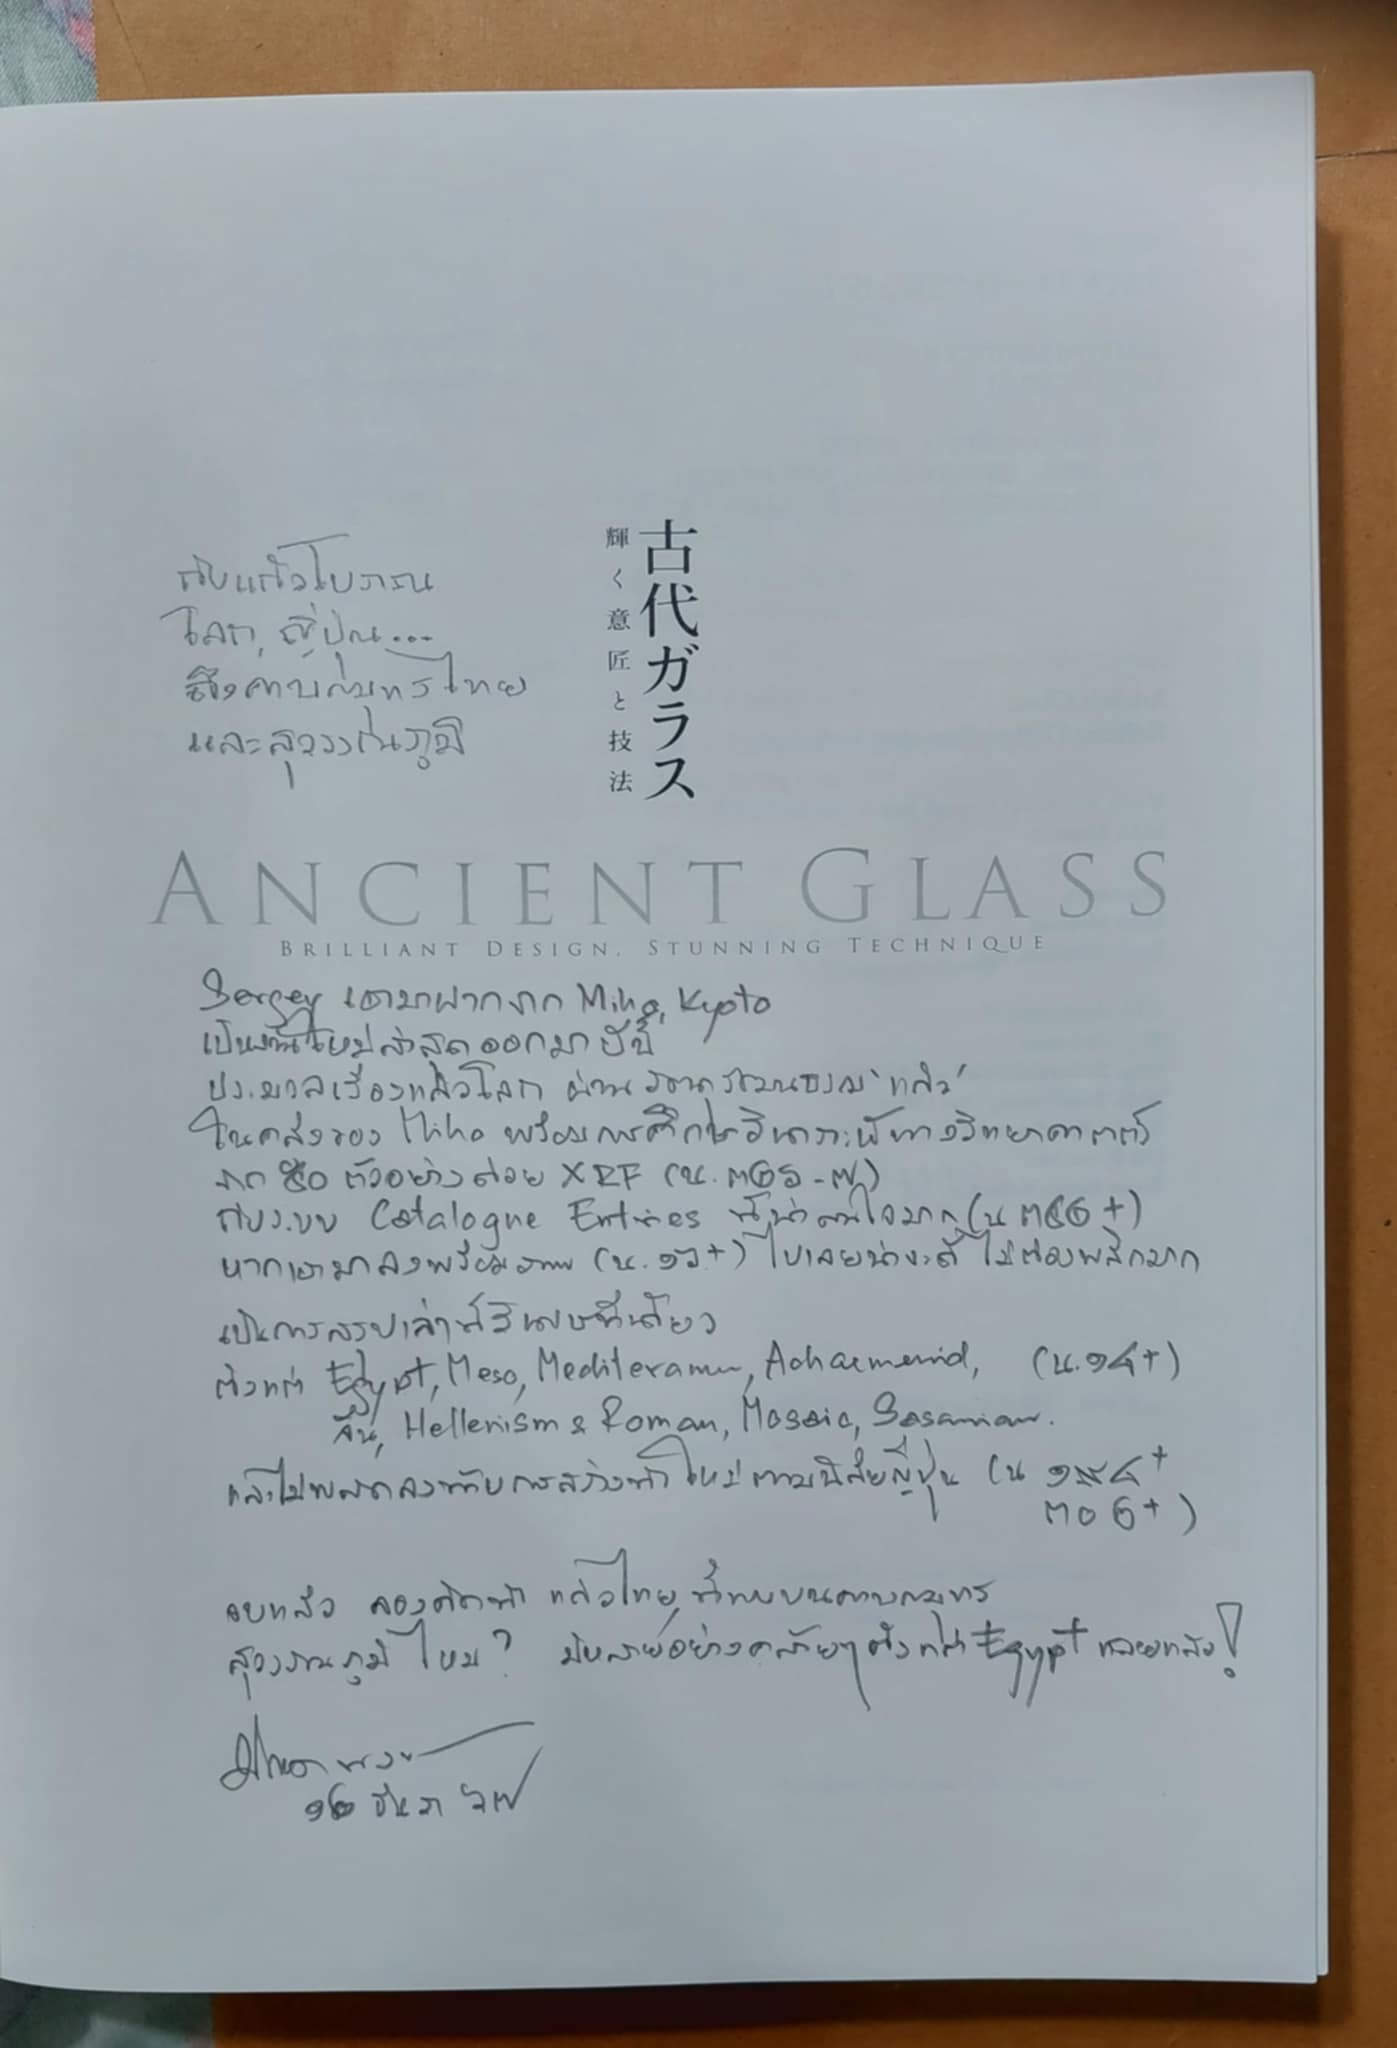 古代ガラス
輝く意匠と技法
กับแก้วโบราณ
โลก, ญี่ปุ่น...
ถึงคาบสมุทรไทย
และสุวรรณภูมิ
ANCIENT GLASS
BRILLIANT DESIGN, STUNNING TECHNIQUE
Sergey เอามาฝากจาก Miho, Kyoto
เป็นงานใหม่ล่าสุดออกมาปีนี้
ประมวลเรื่องแก้วโลก ผ่าน 'แก้ว'
ในคลังของ Miho พร้อมการศึกษาวิเคราะห์ทางวิทยาศาสตร์
จาก ๕๐ ตัวอย่างด้วย XRF
กับระบบ Catalogue Entries ที่น่าสนใจมาก
หากเอามาลงพร้อมภาพ ไปเลยน่าจะดี ไม่ต้องพลิกมาก
เป็นการสรุปเล่าที่วิเศษทีเดียว
ตั้งแต่ Egypt, Meso, (น.๑๔+)
จีน, Hellenism & Roman, Mosaic, Sasanian.
และไม่พลาดลงท้ายการสร้างทำใหม่ตามนิสัยญี่ปุ่น (น ๑๙๔+
๓๐๖+)
จบแล้ว ลองคิดทำ แก้วไทย ที่พบบนคาบสมุทร
สุวรรณภูมิ ไหม? มีหลายอย่างคล้ายๆ ตั้งแต่ Egypt เลยแล้ว!
๑๒ มีนา ๖๗